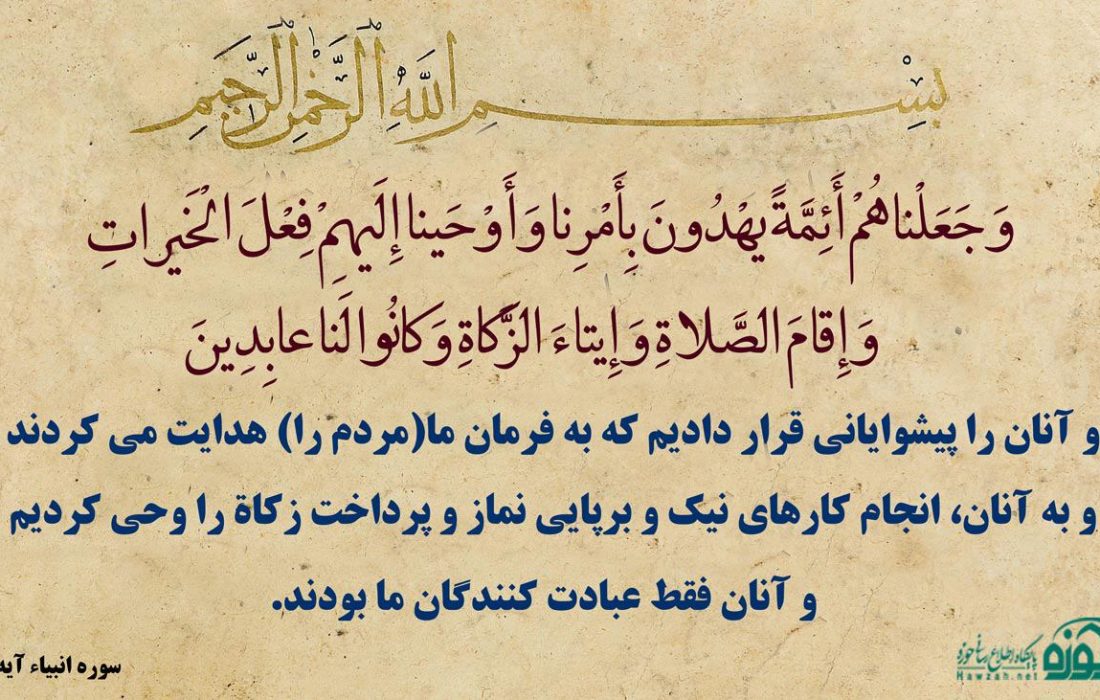 بِسْمِ اللَّهِ الرَّحْمٰنِ الرَّحِيمِ
وَجَعَلْناهُمْ أَئِمَّةً يَهْدُونَ بِأَمْرِنا وَأَوْحَينا إِلَيهِمْ فِعْلَ الْخَيراتِ
وَإِقامَ الصَّلاةِ وَإِيتاءَ الزَّكاةِ وَكانُوا لَنا عابِدِينَ
و آنان را پیشوایانی قرار دادیم که به فرمان ما(مردم را) هدایت می کردند
و به آنان، انجام کارهای نیک و برپایی نماز و پرداخت زکاة را وحی کردیم
و آنان فقط عبادت کنندگان ما بودند.
سوره انبیاء آیه
حوزه
پایگاه اطلاع رسانی حوزه
Hawzah.net